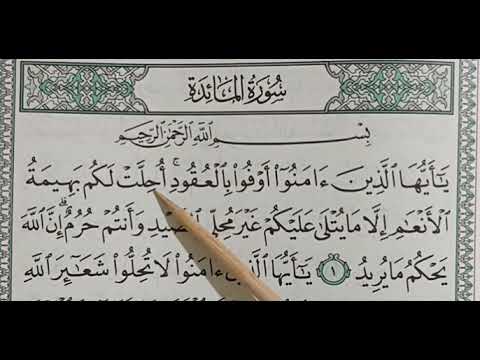 سُورَةُ المَائِدَةِ
بِسْمِ ٱللَّهِ ٱلرَّحْمَٰنِ ٱلرَّحِيمِ
يَٰٓأَيُّهَا ٱلَّذِينَ ءَامَنُوٓا۟ أَوْفُوا۟ بِٱلْعُقُودِ ۚ أُحِلَّتْ لَكُم بَهِيمَةُ
ٱلْأَنْعَٰمِ إِلَّا مَا يُتْلَىٰ عَلَيْكُمْ غَيْرَ مُحِلِّى ٱلصَّيْدِ وَأَنتُمْ حُرُمٌ ۗ إِنَّ ٱللَّهَ
يَحْكُمُ مَا يُرِيدُ ١ يَٰٓأَيُّهَا ءَامَنُوا۟ لَا تُحِلُّوا۟ شَعَٰٓئِرَ ٱللَّهِ